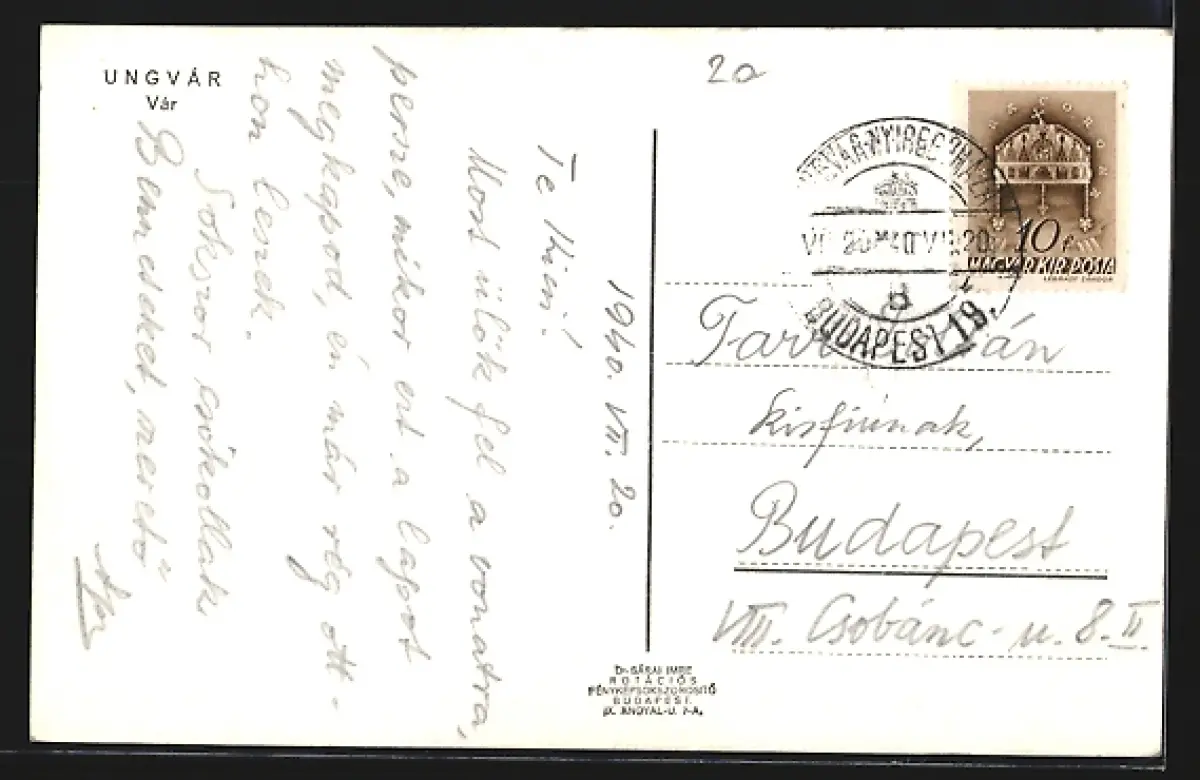 UNGVÁR
Vár
1940. VIII. 20.
Te Kicsi!
Most ülök fel a vonatra,
persze, mikor ezt a lapot
megkapod, én már rég ott-
hon leszek.
Sokszor csókollak
Benneteket, szerető
Apu
2a
BUDAPEST 19.
10 f
MAGYAR KIR. POSTA
LÉGRÁDY SÁNDOR
Kisfiúnak,
Budapest
VIII. Csobánc-u. 8. II.
Dr. BÁRÁI IMRE
ROTÁCIÓS
FÉNYKÉPSOKSZOROSÍTÓ
BUDAPEST.
IX. ANGYAL-U. 7-A.